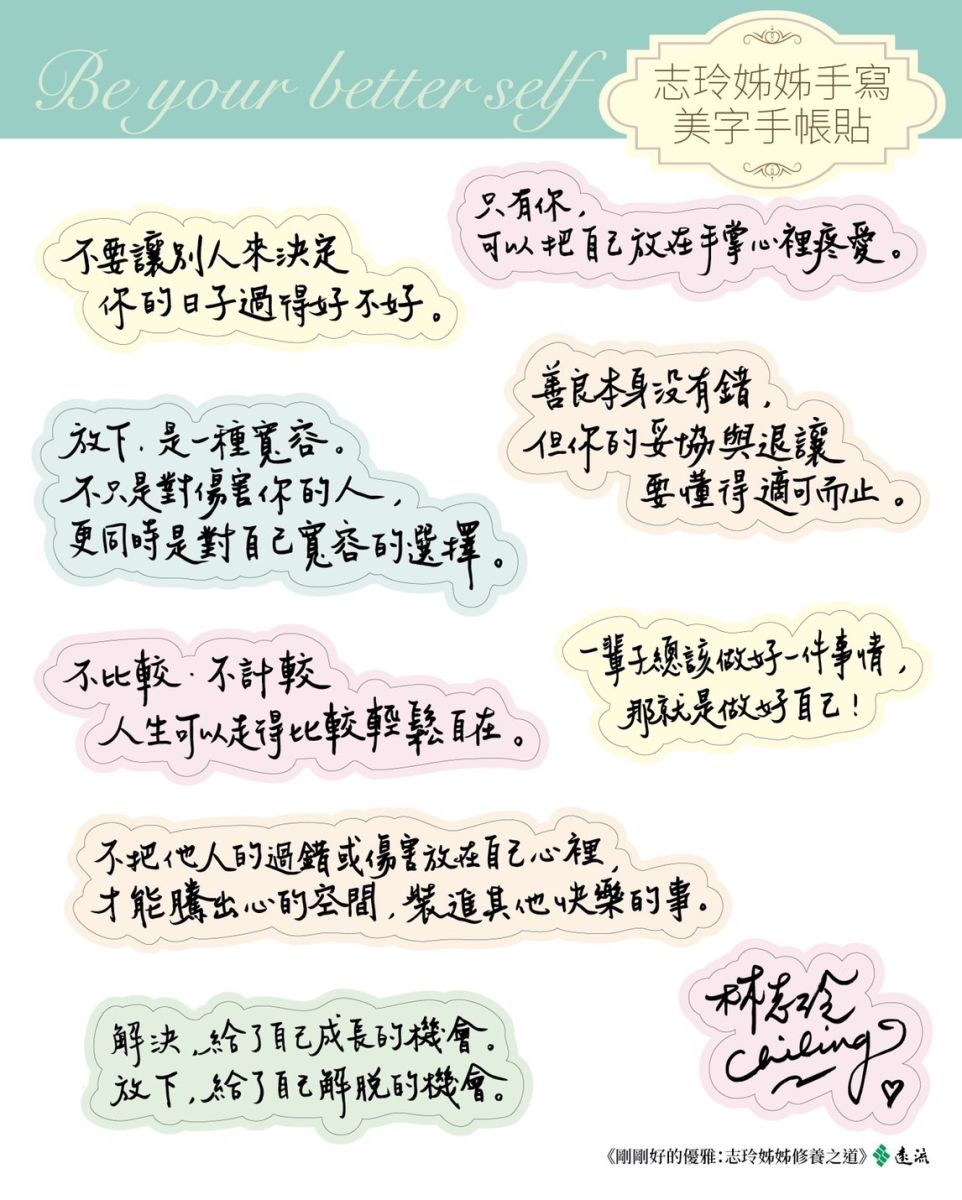 Be your better self
志玲姊姊手寫
美字手帳貼
不要讓別人來決定
你的日子過得好不好。
只有你，
可以把自己放在手掌心裡疼愛。
放下，是一種寬容。
不只是對傷害你的人，
更同時是對自己寬容的選擇。
善良本身没有錯，
但你的妥協與退讓
要懂得適可而止。
不比較．不計較
人生可以走得比較輕鬆自在。
一輩子總該做好一件事情，
那就是做好自己！
不把他人的過錯或傷害放在自己心裡，
才能騰出心的空間，裝進其他快樂的事。
解決，給了自己成長的機會。
放下，給了自己解脫的機會。
林志玲
Chiling
《剛剛好的優雅：志玲姊姊修養之道》 遠流